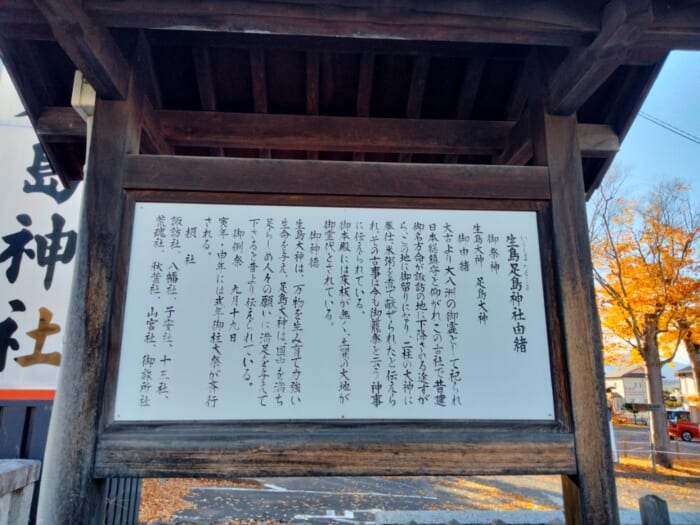 生島足島神社由緒
御祭神
生島大神 足島大神
御由緒
太古より大八洲の御霊として祀られ
日本総鎮守と仰がれるこの古社で、昔建
御名方命が諏訪の地に下降される途すが
ら、この地に御留りになり、二柱の大神に
奉仕し米粥を煮て献ぜられたと伝えら
れ、その古事は今も御籠祭という神事
に伝えられている。
御本殿には床板が無く、土間の大地が
御霊代とされている。
御神徳
生島大神は、万物を生み育て力強い
生命を与え、足島大神は、国中を満ち
足らしめ人々の願いに満足を与えて
下さると昔より伝えられている。
御例祭 九月十九日
寅年・申年には式年御柱大祭が斎行
される。
摂社
諏訪社、八幡社、子安社、十三社、
荒魂社、秋葉社、山宮社、御旅所社
島神社